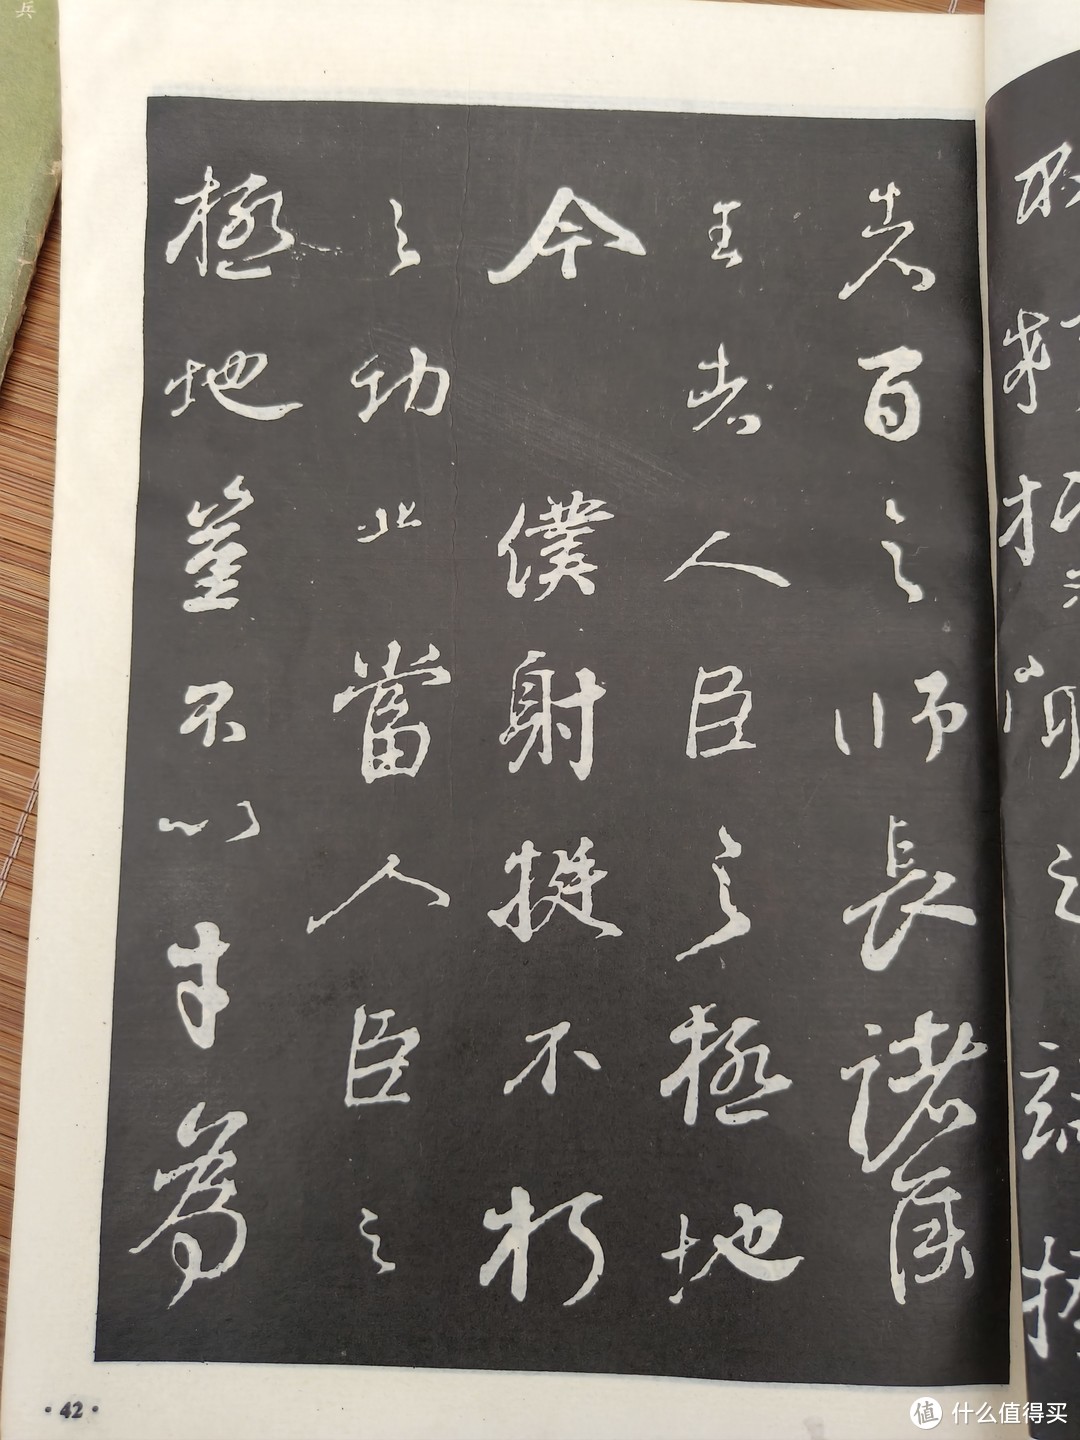 者百之師長諸侯
王者人臣之極地
今僕射挺不朽
之功业當人臣之
極地豈不以才為
·42·
兵
值 什么值得买